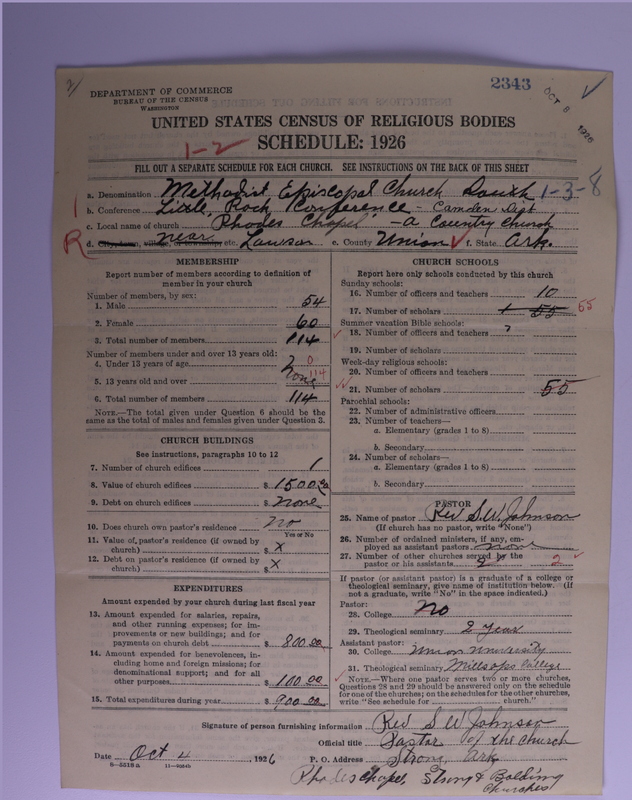 2343
OCT 8 1926
DEPARTMENT OF COMMERCE
BUREAU OF THE CENSUS
WASHINGTON
UNITED STATES CENSUS OF RELIGIOUS BODIES
SCHEDULE: 1926
1-2
FILL OUT A SEPARATE SCHEDULE FOR EACH CHURCH. SEE INSTRUCTIONS ON THE BACK OF THIS SHEET
a. Denomination Methodist Episcopal Church South 1-3-8
b. Conference Little Rock Conference - Camden Dist
c. Local name of church Rhodes Chapel - a Country Church
R d. City, town, village, or township, etc. near Lawson e. County Union f. State Ark.
MEMBERSHIP
Report number of members according to definition of member in your church
Number of members, by sex:
1. Male 54
2. Female 60
3. Total number of members 114
Number of members under and over 13 years old:
4. Under 13 years of age 0
5. 13 years old and over none 114
6. Total number of members 114
NOTE.—The total given under Question 6 should be the same as the total of males and females given under Question 3.
CHURCH BUILDINGS
See instructions, paragraphs 10 to 12
7. Number of church edifices 1
8. Value of church edifices $ 1500.00
9. Debt on church edifices $ none
10. Does church own pastor's residence no
Yes or No
11. Value of pastor's residence (if owned by church) $ x
12. Debt on pastor's residence (if owned by church) $ x
EXPENDITURES
Amount expended by your church during last fiscal year
13. Amount expended for salaries, repairs, and other running expenses; for improvements or new buildings; and for payments on church debt $ 800.00
14. Amount expended for benevolences, including home and foreign missions; for denominational support; and for all other purposes $ 100.00
15. Total expenditures during year $ 900.00
CHURCH SCHOOLS
Report here only schools conducted by this church
Sunday schools:
16. Number of officers and teachers 10
17. Number of scholars 55 55
Summer vacation Bible schools:
18. Number of officers and teachers
19. Number of scholars
Week-day religious schools:
20. Number of officers and teachers
21. Number of scholars 55
Parochial schools:
22. Number of administrative officers
23. Number of teachers—
a. Elementary (grades 1 to 8)
b. Secondary
24. Number of scholars—
a. Elementary (grades 1 to 8)
b. Secondary
PASTOR
25. Name of pastor Rev S.W. Johnson
(If church has no pastor, write "None")
26. Number of ordained ministers, if any, employed as assistant pastors none
27. Number of other churches served by the pastor or his assistants 2 2
If pastor (or assistant pastor) is a graduate of a college or theological seminary, give name of institution below. (If not a graduate, write "No" in the space indicated.)
Pastor:
28. College no
29. Theological seminary 2 Year
Assistant pastor:
30. College Union University
31. Theological seminary Millsops College
NOTE.—Where one pastor serves two or more churches, Questions 28 and 29 should be answered only on the schedule for one of the churches; on the schedules for the other churches, write "See schedule for church."
Signature of person furnishing information Rev S W Johnson
Official title Pastor of the Church
Date Oct 4, 1926 P. O. Address Strong Ark
8-5518a 11-9954b
Rhodes Chapel, Strong & Bolding Churches